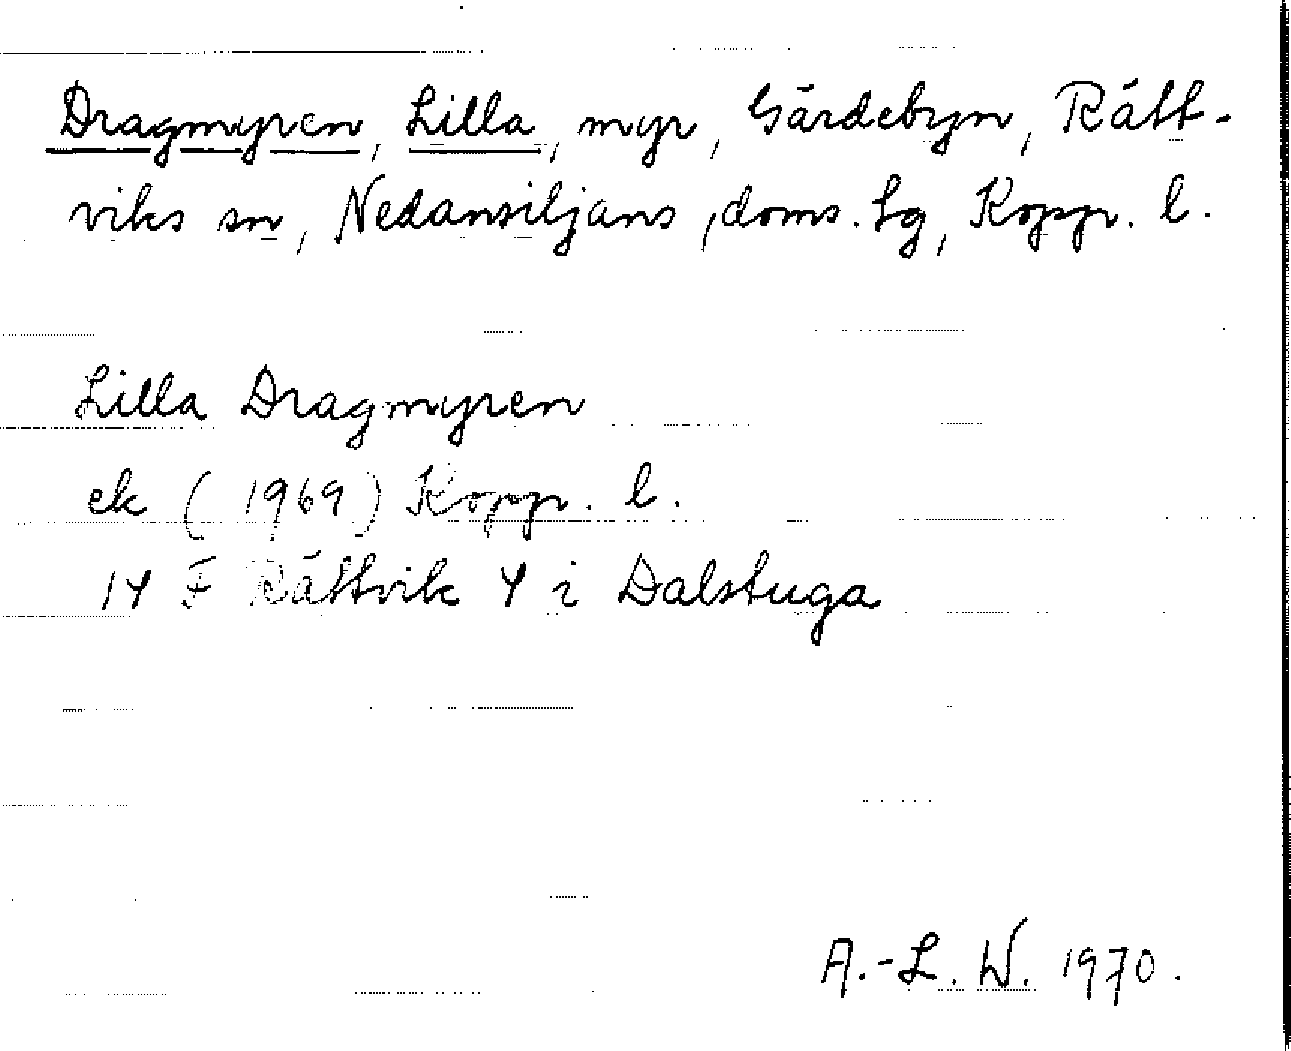 Dragmyren, Lilla, myr, Gärdebyn, Rätt-
viks sn, Nedansiljans, doms. tg, Kopp. l.
Lilla Dragmyren
ek (1969) Kopp. l.
14 F Rättvik 4 i Dalstuga
A.-L. W. 1970.